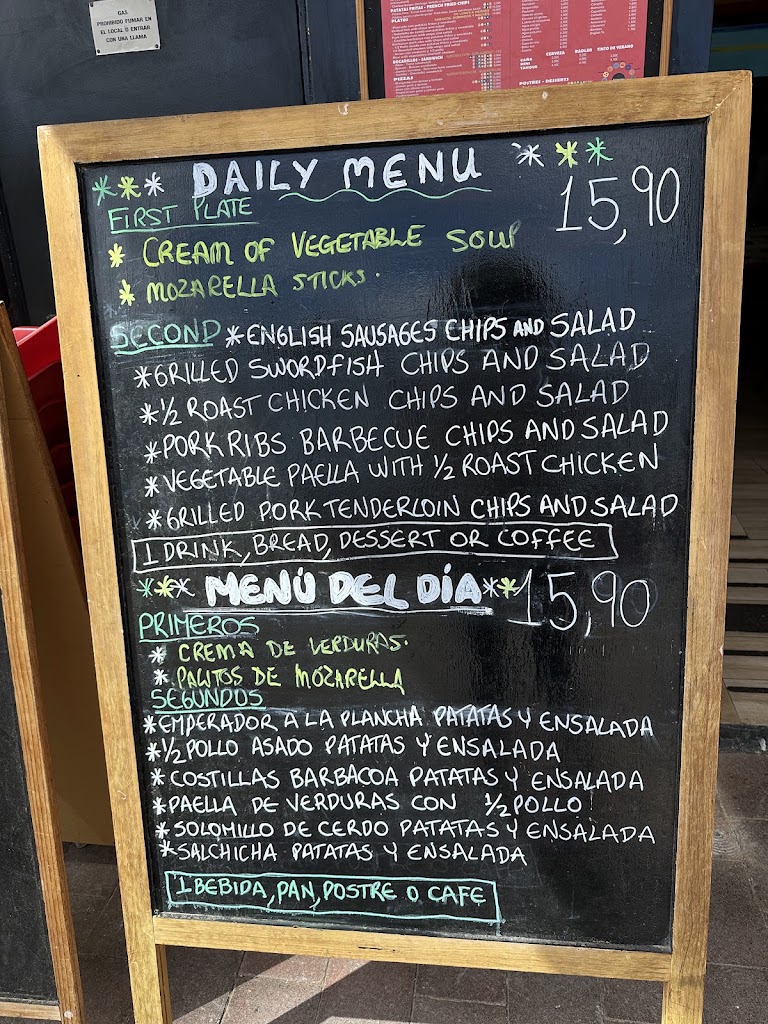 GAS
PROHIBIDO FUMAR EN
EL LOCAL O ENTRAR
CON UNA LLAMA
PATATAS FRITAS - FRENCH FRIED CHIPS
PLATOS
BOCADILLOS - SANDWICH
PIZZAS
CERVEZA
TINTO DE VERANO
CAÑA
POSTRES - DESSERTS
*** DAILY MENU ***
FIRST PLATE
15,90
* CREAM OF VEGETABLE SOUP
* MOZARELLA STICKS.
SECOND * ENGLISH SAUSAGES CHIPS AND SALAD
* GRILLED SWORDFISH CHIPS AND SALAD
* 1/2 ROAST CHICKEN CHIPS AND SALAD
* PORK RIBS BARBECUE CHIPS AND SALAD
* VEGETABLE PAELLA WITH 1/2 ROAST CHICKEN
* GRILLED PORK TENDERLOIN CHIPS AND SALAD
1 DRINK, BREAD, DESSERT OR COFFEE
*** MENÚ DEL DÍA ** 15,90
PRIMEROS
* CREMA DE VERDURAS.
* PALITOS DE MOZARELLA
SEGUNDOS
* EMPERADOR A LA PLANCHA PATATAS Y ENSALADA
* 1/2 POLLO ASADO PATATAS Y ENSALADA
* COSTILLAS BARBACOA PATATAS Y ENSALADA
* PAELLA DE VERDURAS CON 1/2 POLLO
* SOLOMILLO DE CERDO PATATAS Y ENSALADA
* SALCHICHA PATATAS Y ENSALADA
1 BEBIDA, PAN, POSTRE O CAFE